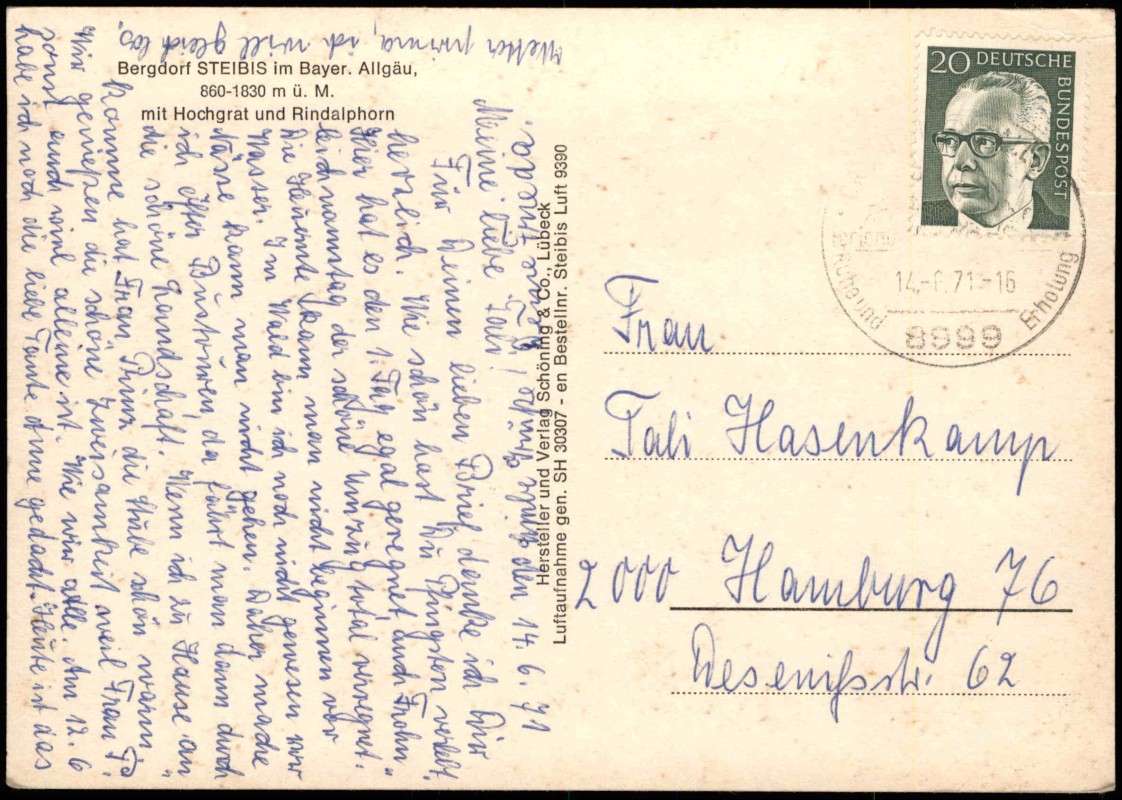 Bergdorf STEIBIS im Bayer. Allgäu,
860-1830 m ü. M.
mit Hochgrat und Rindalphorn
Hersteller und Verlag Schöning & Co., Lübeck
Luftaufnahme gen. SH 30307 - en Bestellnr. Steibis Luft 9390
den 14.6.71
Meine liebe Tali!
Für Deinen lieben Brief danke ich Dir
herzlich. Wie schön hast Du Pfingsten verlebt,
hier hat es den 1. Tag egal geregnet auch Frohn„
leichnamtag der schöne Umzug total verregnet.
Die Heuernte kann man nicht beginnen vor
Wasser. Im Wald bin ich noch nicht gewesen vor
Nässe kann man nicht gehen. Daher mache
ich öfter Bustouren da fährt man dann durch
die schöne Landschaft. Wenn ich zu Hause an„
komme hat Frau Prinz die Stube schön warm.
Wir genießen die schöne Zweisamkeit weil Frau P.
sonst auch viel alleine ist. Wie wir alle. Am 12.6
habe ich noch an die liebe Tante Anne gedacht. Heute ist das
Wetter prima, ich will gleich los.
DEUTSCHE BUNDESPOST
20
14.-6.71.-16
Ruhe und Erholung
8999
Frau
Tali Hasenkamp
2000 Hamburg 76
62